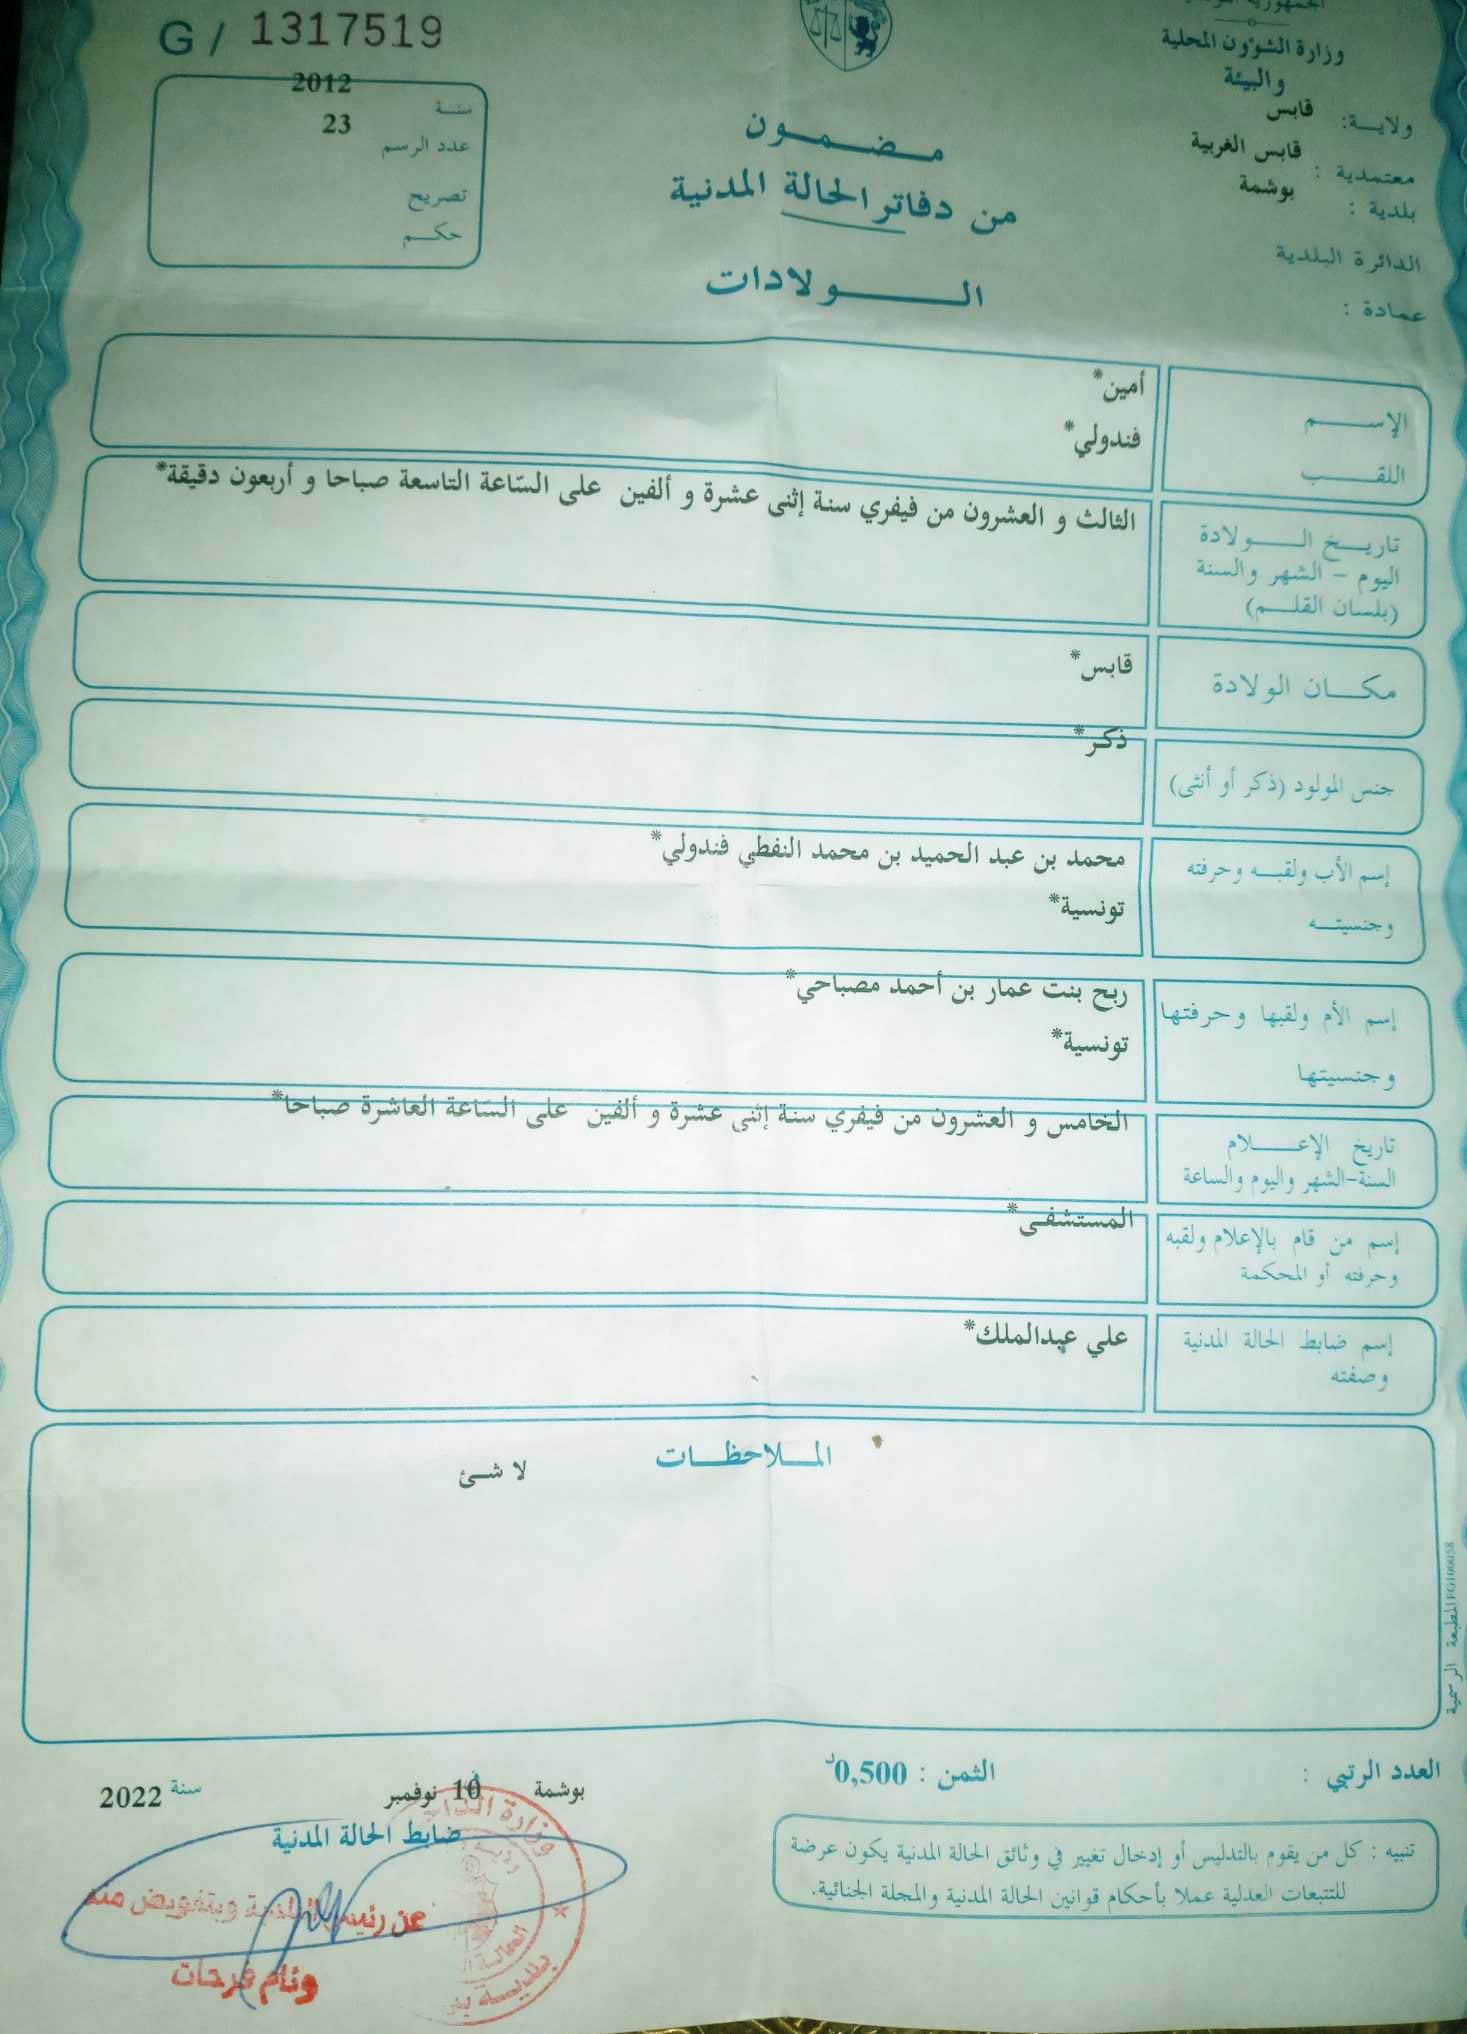 G / 1317519
وزارة الشؤون المحلية
والبيئة
ولاية: قابس
معتمدية : قابس الغربية
بلدية : بوشمة
الدائرة البلدية
عمادة :
سنة 2012
عدد الرسم 23
تصريح
حكم
مضمون
من دفاتر الحالة المدنية
الولادات
الإسم أمين*
اللقب فندولي*
تاريخ الولادة
اليوم - الشهر والسنة
(بلسان القلم)
الثالث و العشرون من فيفري سنة إثنى عشرة و ألفين على السّاعة التاسعة صباحا و أربعون دقيقة*
مكان الولادة قابس*
جنس المولود (ذكر أو أنثى) ذكر*
إسم الأب ولقبه وحرفته محمد بن عبد الحميد بن محمد النفطي فندولي*
وجنسيته تونسية*
إسم الأم ولقبها وحرفتها ربح بنت عمار بن أحمد مصباحي*
وجنسيتها تونسية*
تاريخ الإعلام
السنة-الشهر واليوم والساعة
الخامس و العشرون من فيفري سنة إثنى عشرة و ألفين على السّاعة العاشرة صباحا*
إسم من قام بالإعلام ولقبه
وحرفته أو المحكمة
المستشفى*
إسم ضابط الحالة المدنية
وصفته
علي عبدالملك*
الملاحظات
لا شئ
المطبعة الرسمية
العدد الرتبي :
الثمن : 0,500د
تنبيه : كل من يقوم بالتدليس أو إدخال تغيير في وثائق الحالة المدنية يكون عرضة
للتتبعات العدلية عملا بأحكام قوانين الحالة المدنية والمجلة الجنائية.
بوشمة في 10 نوفمبر سنة 2022
ضابط الحالة المدنية
عن رئيس البلدية وبتفويض منه
وئام فرحات